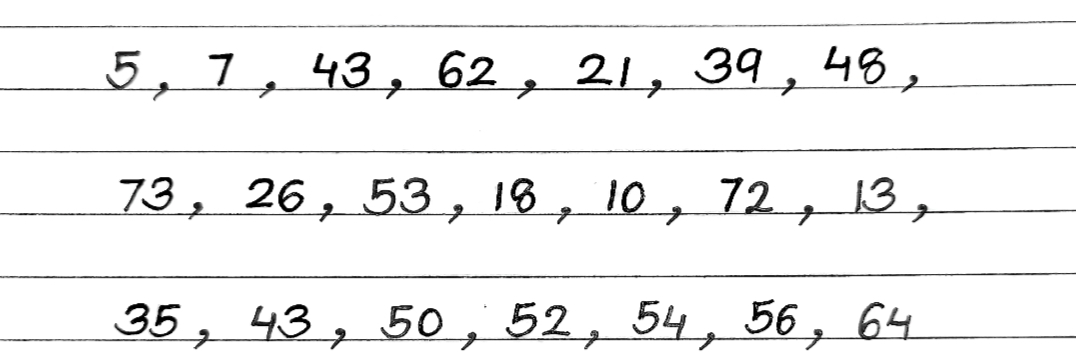 5, 7, 43, 62, 21, 39, 48,
73, 26, 53, 18, 10, 72, 13,
35, 43, 50, 52, 54, 56, 64